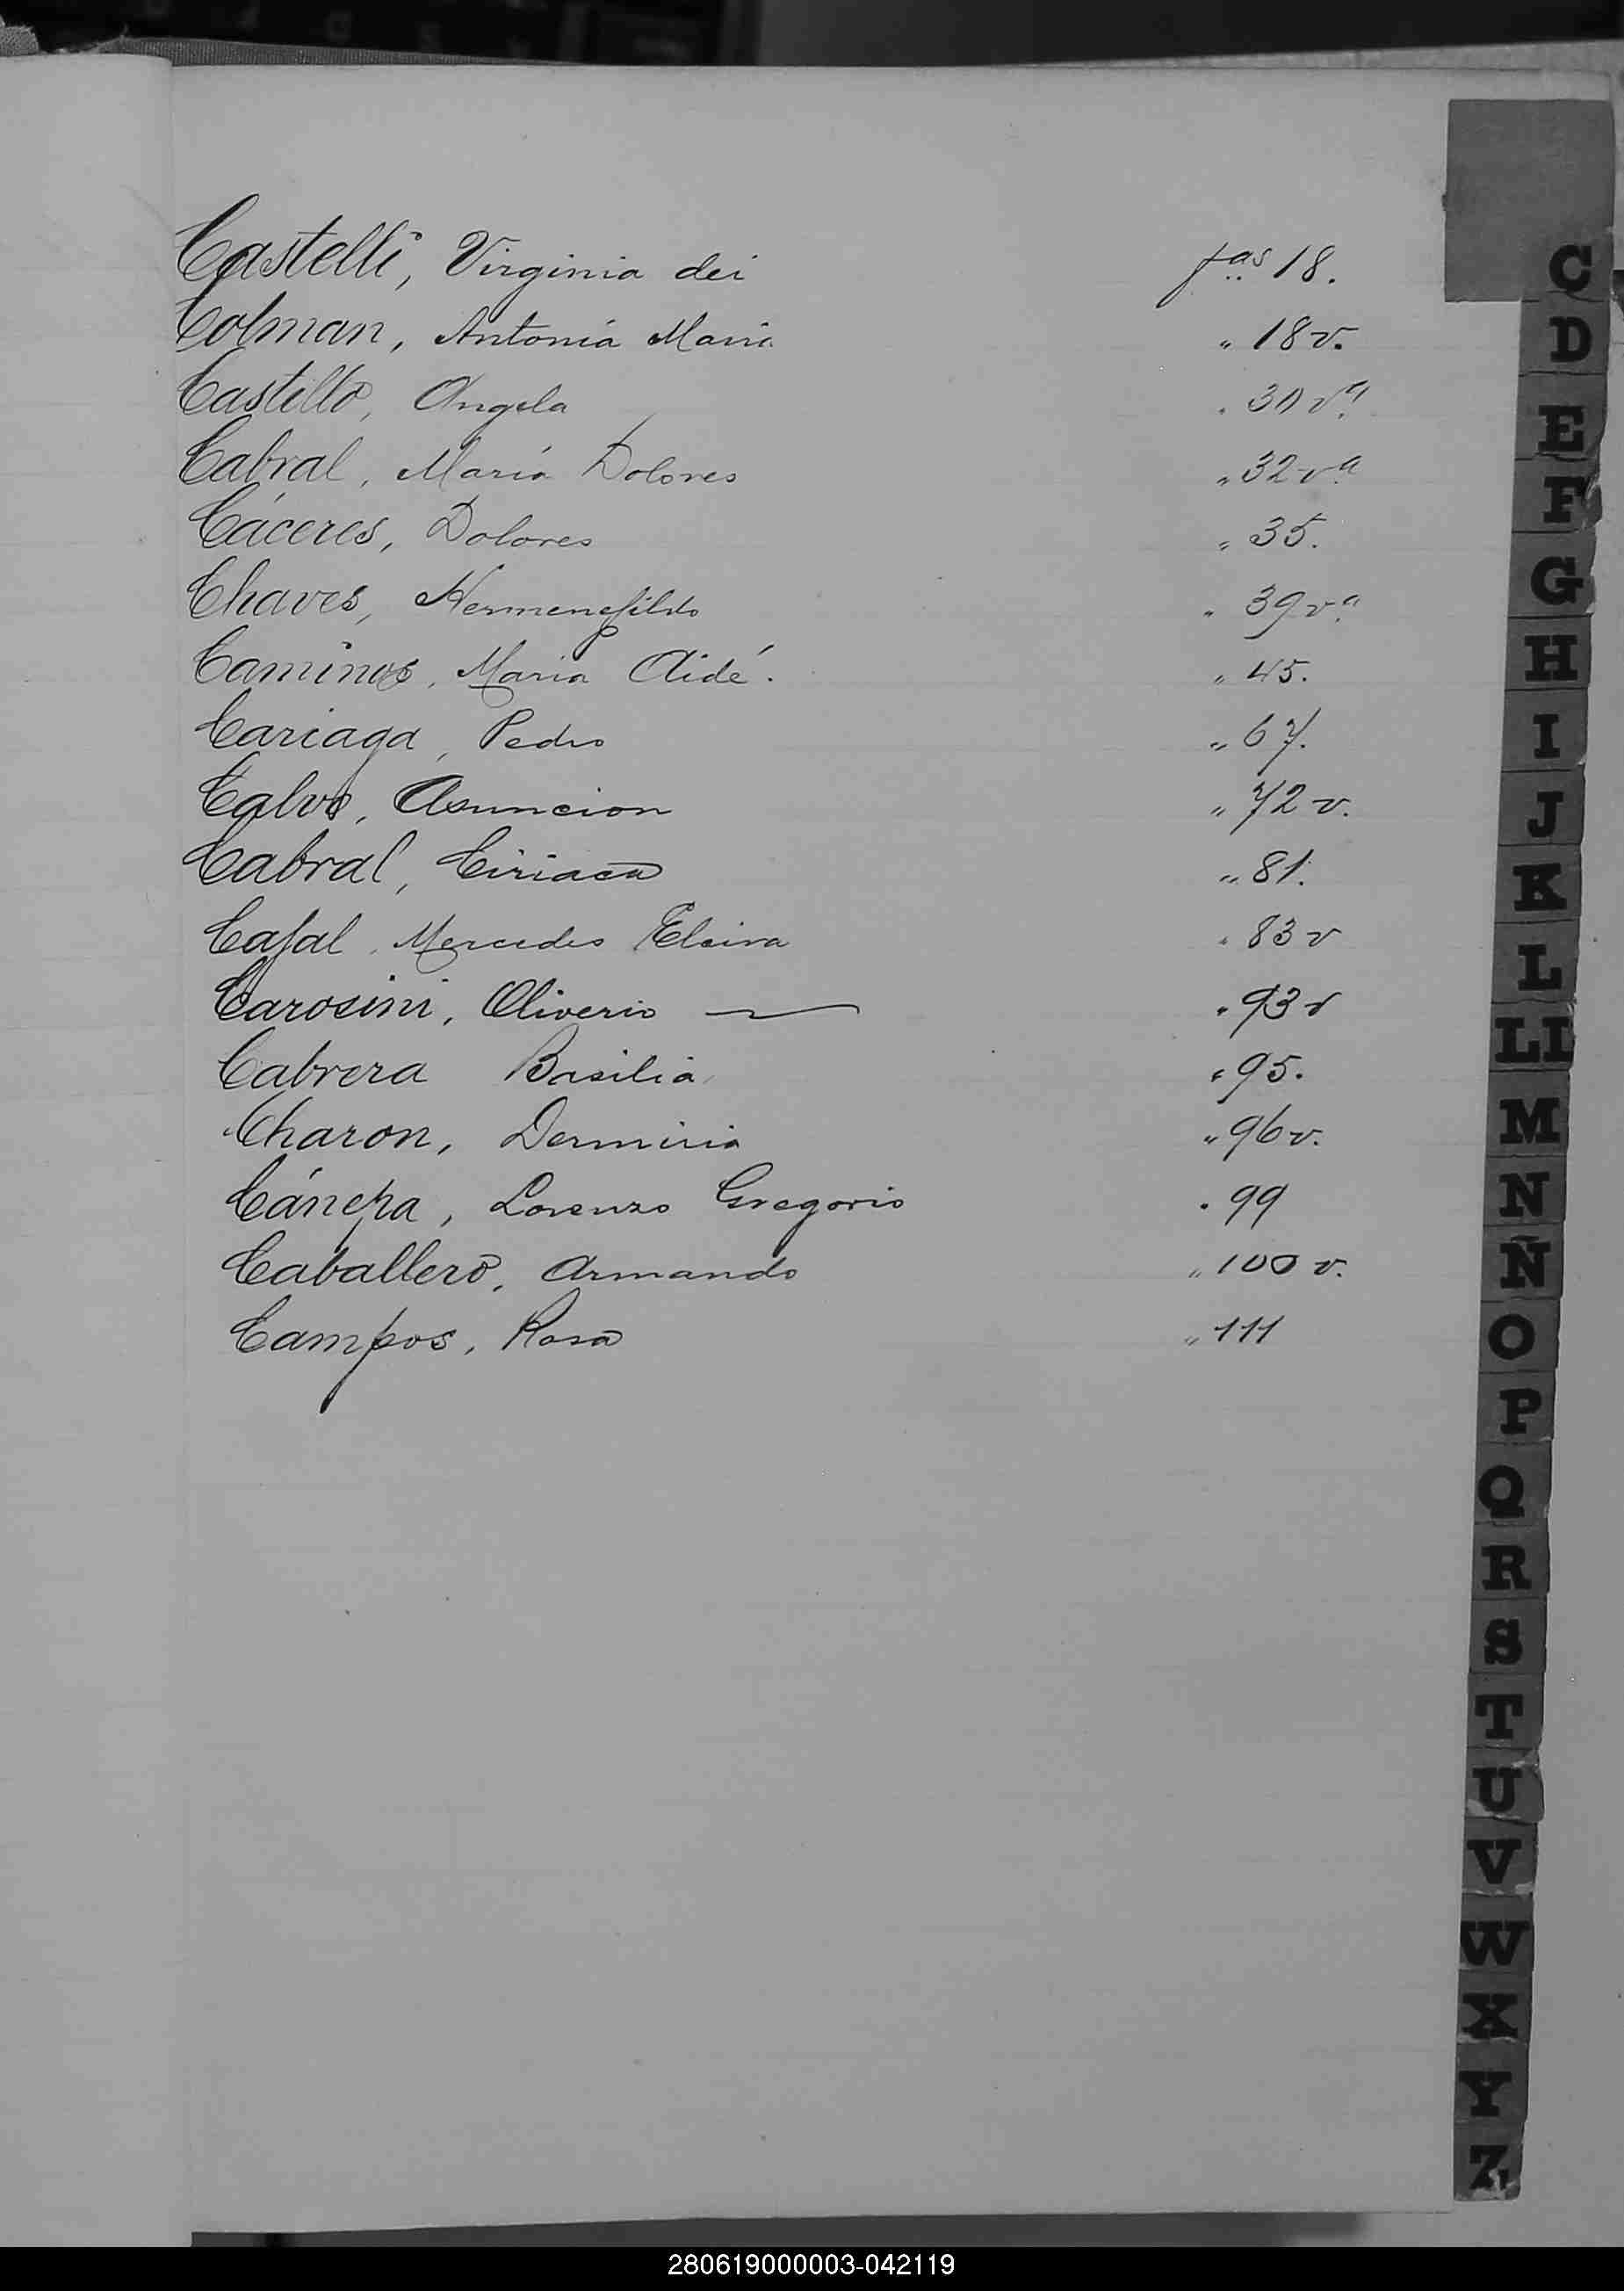 Castelli, Virginia dei fas 18.
Colman, Antonia Maria " 18 v.
Castillo, Angela " 30 va
Cabral, María Dolores " 32 va
Cáceres, Dolores " 35.
Chaves, Hermenegildo " 39 va
Caminos, Maria Aidé. " 45.
Cariaga, Pedro " 67.
Calvo, Asuncion " 72 v.
Cabral, Ciriaca " 81.
Cajal, Mercedes Elcira " 83 v
Carosini, Oliverio " 93 v
Cabrera Basilia " 95.
Charon, Dermiria " 96 v.
Cánepa, Lorenzo Gregorio " 99
Caballero, Armando " 100 v.
Campos, Rosa " 111
C
D
E
F
G
H
I
J
K
L
Ll
M
N
Ñ
O
P
Q
R
S
T
U
V
W
X
Y
Z
280619000003-042119